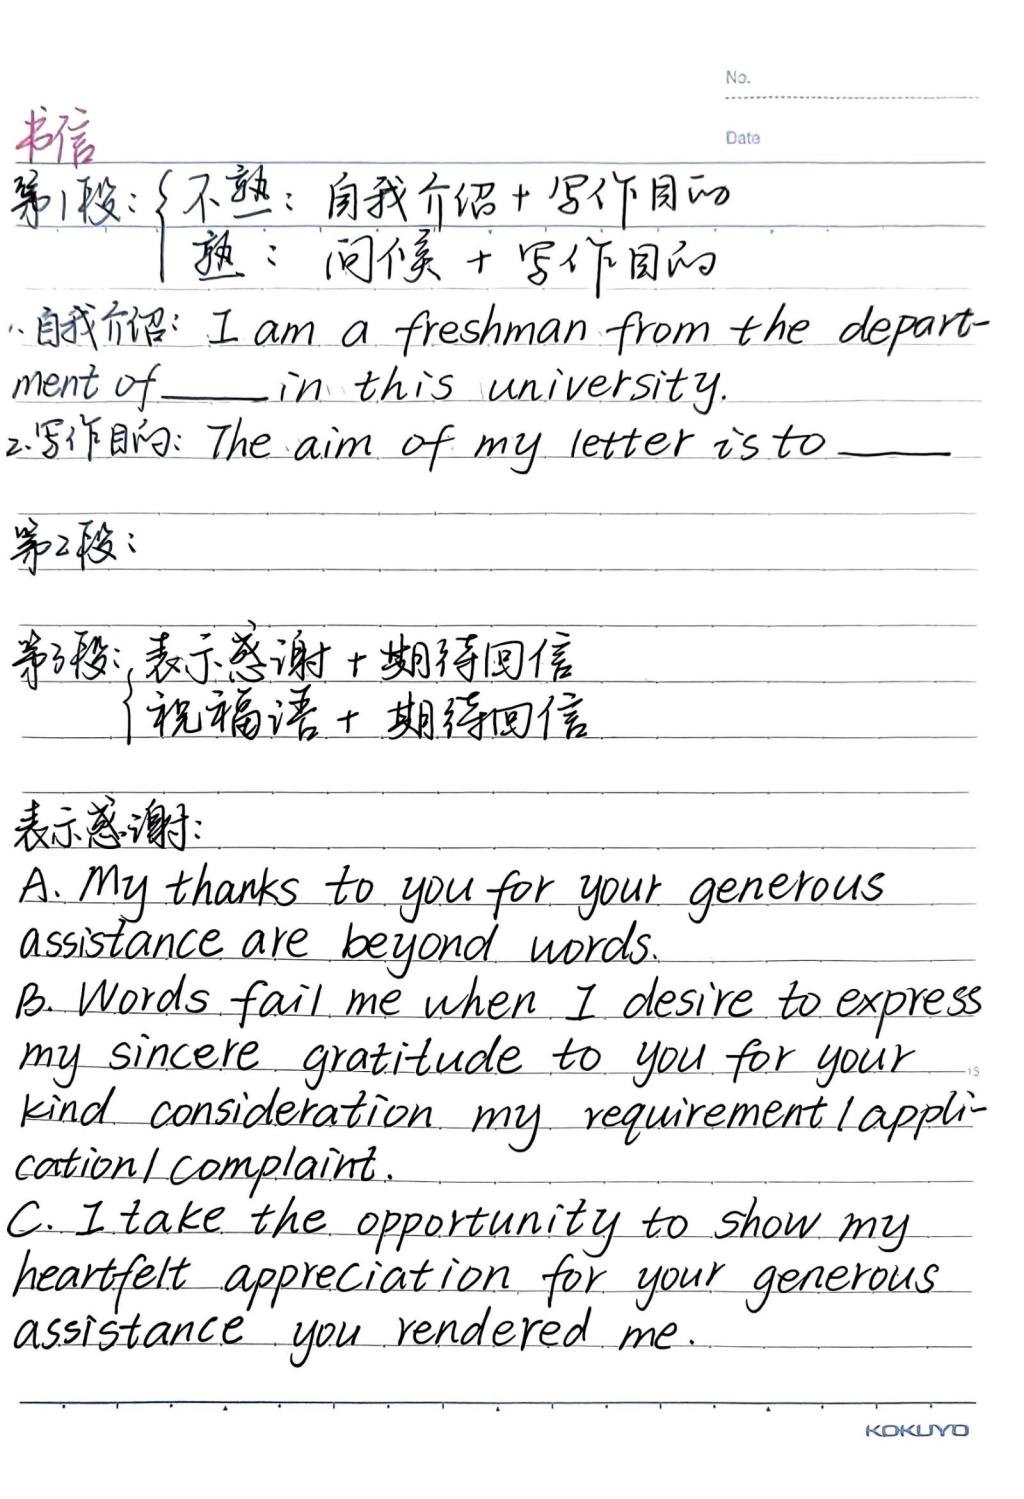 No.
Date
书信
第1段：{不熟：自我介绍＋写作目的
熟：问候＋写作目的
1.自我介绍：I am a freshman from the depart-
ment of ____ in this university.
2.写作目的：The aim of my letter is to ____
第2段：
第3段：{表示感谢＋期待回信
祝福语＋期待回信
表示感谢：
A. My thanks to you for your generous
assistance are beyond words.
B. Words fail me when I desire to express
my sincere gratitude to you for your
15
kind consideration my requirement/appli-
cation/complaint.
C. I take the opportunity to show my
heartfelt appreciation for your generous
assistance you rendered me.
KOKUYO